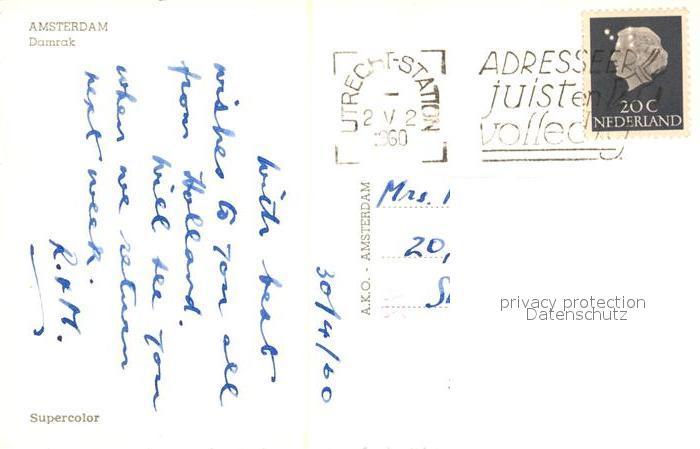 AMSTERDAM
Damrak
30/4/60
With best
wishes to you all
from Holland.
Will see you
when we return
next week.
R.+M.
Supercolor
A.K.O. - AMSTERDAM
UTRECHT-STATION
2 V 2
1960
ADRESSEER
juist en
volledig
20 C
NEDERLAND
Mrs.
20,
privacy protection
Datenschutz